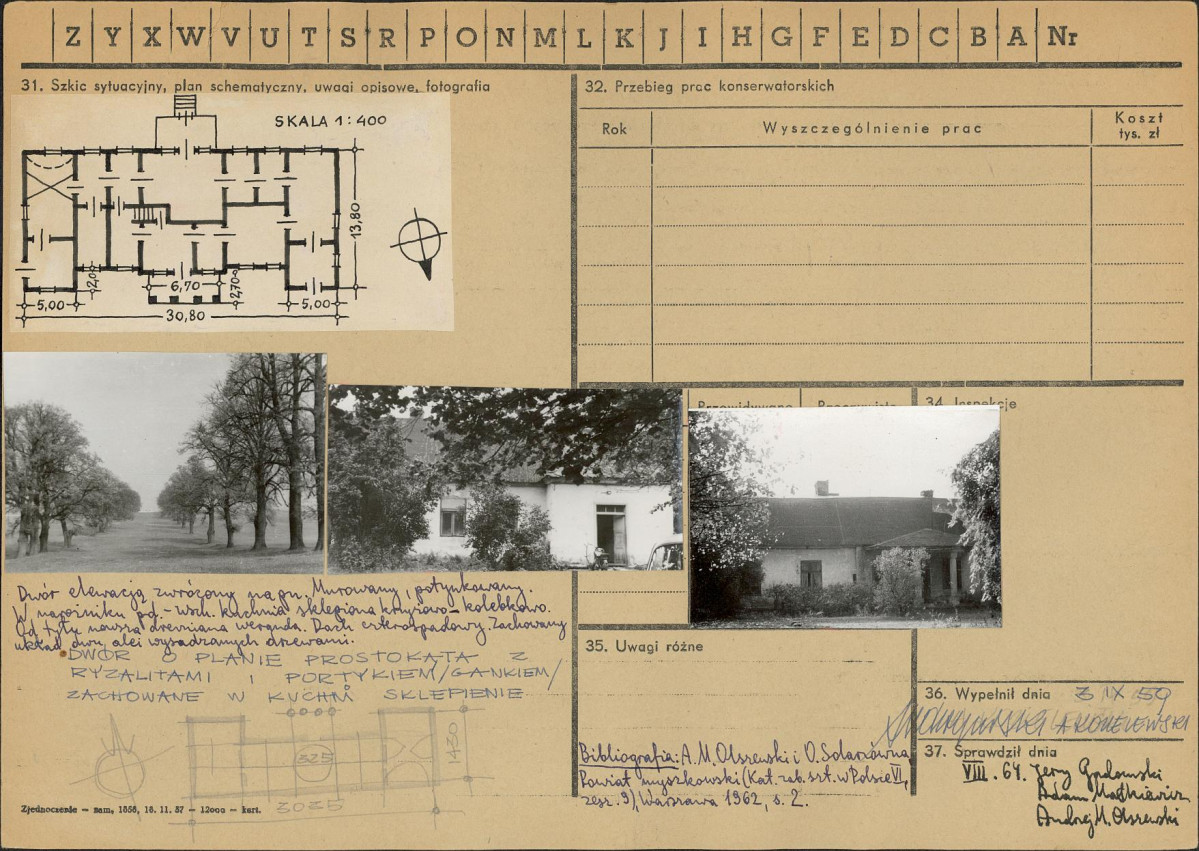 Z Y X W V U T S R P O N M L K J I H G F E D C B A Nr
31. Szkic sytuacyjny, plan schematyczny, uwagi opisowe, fotografia
SKALA 1:400
13,80
2,0
6,70
2,70
5,00
5,00
30,80
Dwór elewacją zwrócony na pn. Murowany, potynkowany.
W narożniku pd.-wsch. kuchnia sklepiona krzyżowo-kolebkowo.
Od tyłu nowsza drewniana weranda. Dach czterospadowy. Zachowany
układ dwu alei wysadzanych drzewami.
DWÓR O PLANIE PROSTOKĄTA Z
RYZALITAMI I PORTYKIEM/GANKIEM/
ZACHOWANE W KUCHNI SKLEPIENIE
325
1430
3025
Zjednoczenie — zam. 1856, 18. 11. 57 — 12000 — kart.
32. Przebieg prac konserwatorskich
Rok
Wyszczególnienie prac
Koszt
tys. zł
34. Inspekcje
35. Uwagi różne
Bibliografia: A. M. Olszewski i O. Solarzówna,
Powiat myszkowski (Kat. zab. szt. w Polsce VI,
zesz. 9), Warszawa 1962, s. 2.
36. Wypełnił dnia 3 IX 59
37. Sprawdził dnia
VIII. 64. Jerzy Gadomski
Adam Małkiewicz
Andrzej M. Olszewski